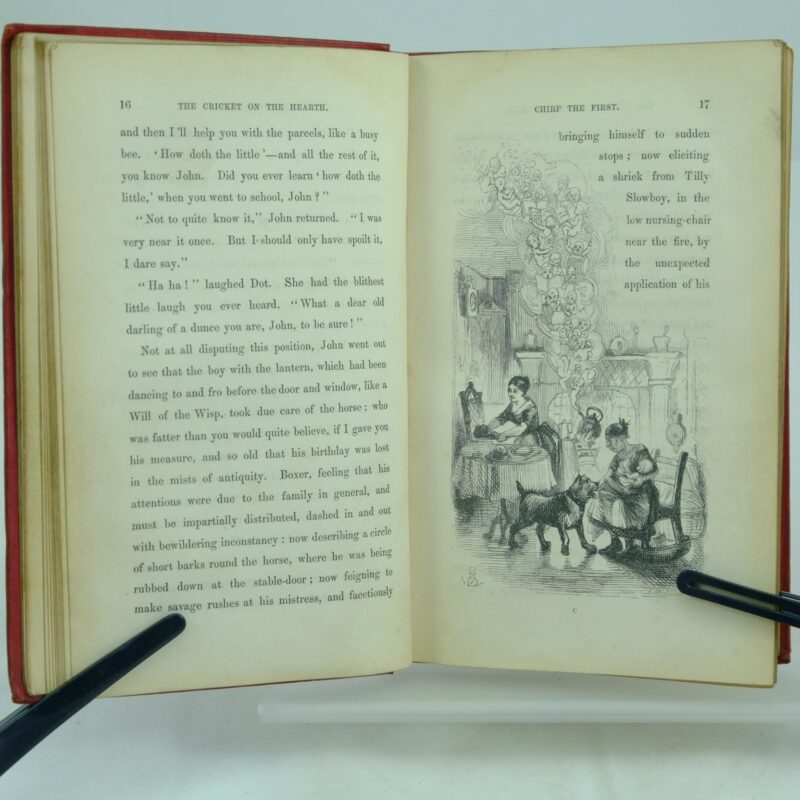 16 THE CRICKET ON THE HEARTH.
and then I'll help you with the parcels, like a busy
bee. 'How doth the little'—and all the rest of it,
you know John. Did you ever learn 'how doth the
little,' when you went to school, John?"
"Not to quite know it," John returned. "I was
very near it once. But I should only have spoilt it,
I dare say."
"Ha ha!" laughed Dot. She had the blithest
little laugh you ever heard. "What a dear old
darling of a dunce you are, John, to be sure!"
Not at all disputing this position, John went out
to see that the boy with the lantern, which had been
dancing to and fro before the door and window, like a
Will of the Wisp, took due care of the horse; who
was fatter than you would quite believe, if I gave you
his measure, and so old that his birthday was lost
in the mists of antiquity. Boxer, feeling that his
attentions were due to the family in general, and
must be impartially distributed, dashed in and out
with bewildering inconstancy: now describing a circle
of short barks round the horse, where he was being
rubbed down at the stable-door; now feigning to
make savage rushes at his mistress, and facetiously
CHIRP THE FIRST. 17
bringing himself to sudden
stops; now eliciting
a shriek from Tilly
Slowboy, in the
low nursing-chair
near the fire, by
the unexpected
application of his
C